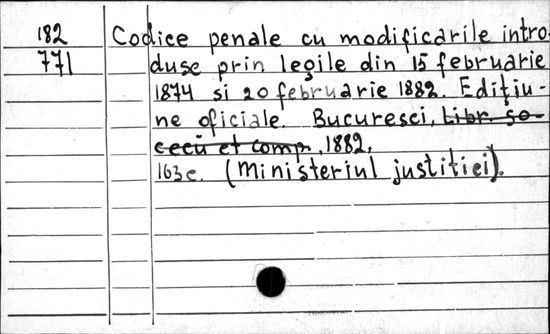 182 Codice penale cu modificarile intro-
771 duse prin legile din 15 februarie
1874 si 20 februarie 1882. Ediţiu-
ne oficiale. Bucuresci, Libr. So-
cecŭ et comp. 1882.
163 c. (Ministeriul justiţiei).